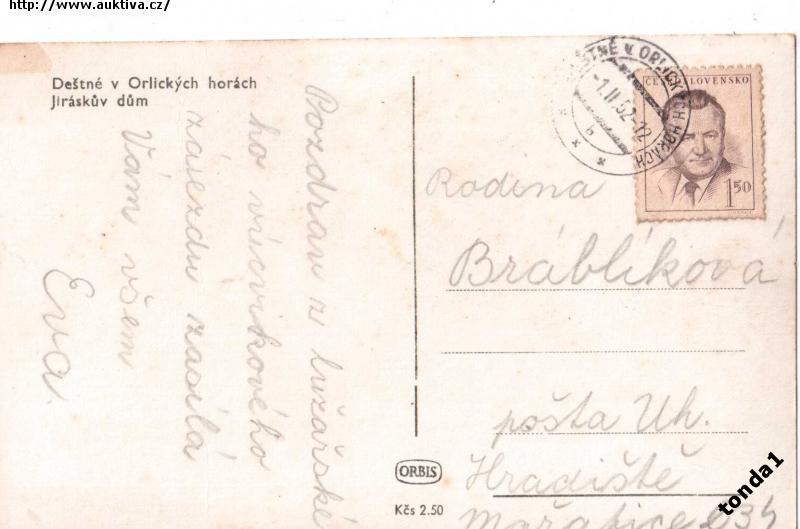 http://www.auktiva.cz/
Deštné v Orlických horách
Jiráskův dům
Pozdrav z lyžařské
ho výcvikového
zájezdu zasílá
Vám všem
Eva.
ŠTNÉ V ORLICKÝCH HORÁCH
-1.II.52-12
b
ČESKOSLOVENSKO
1 50
Rodina
Bráblíková
pošta Uh.
Hradiště
Mařatice 634
ORBIS
Kčs 2.50
tonda1